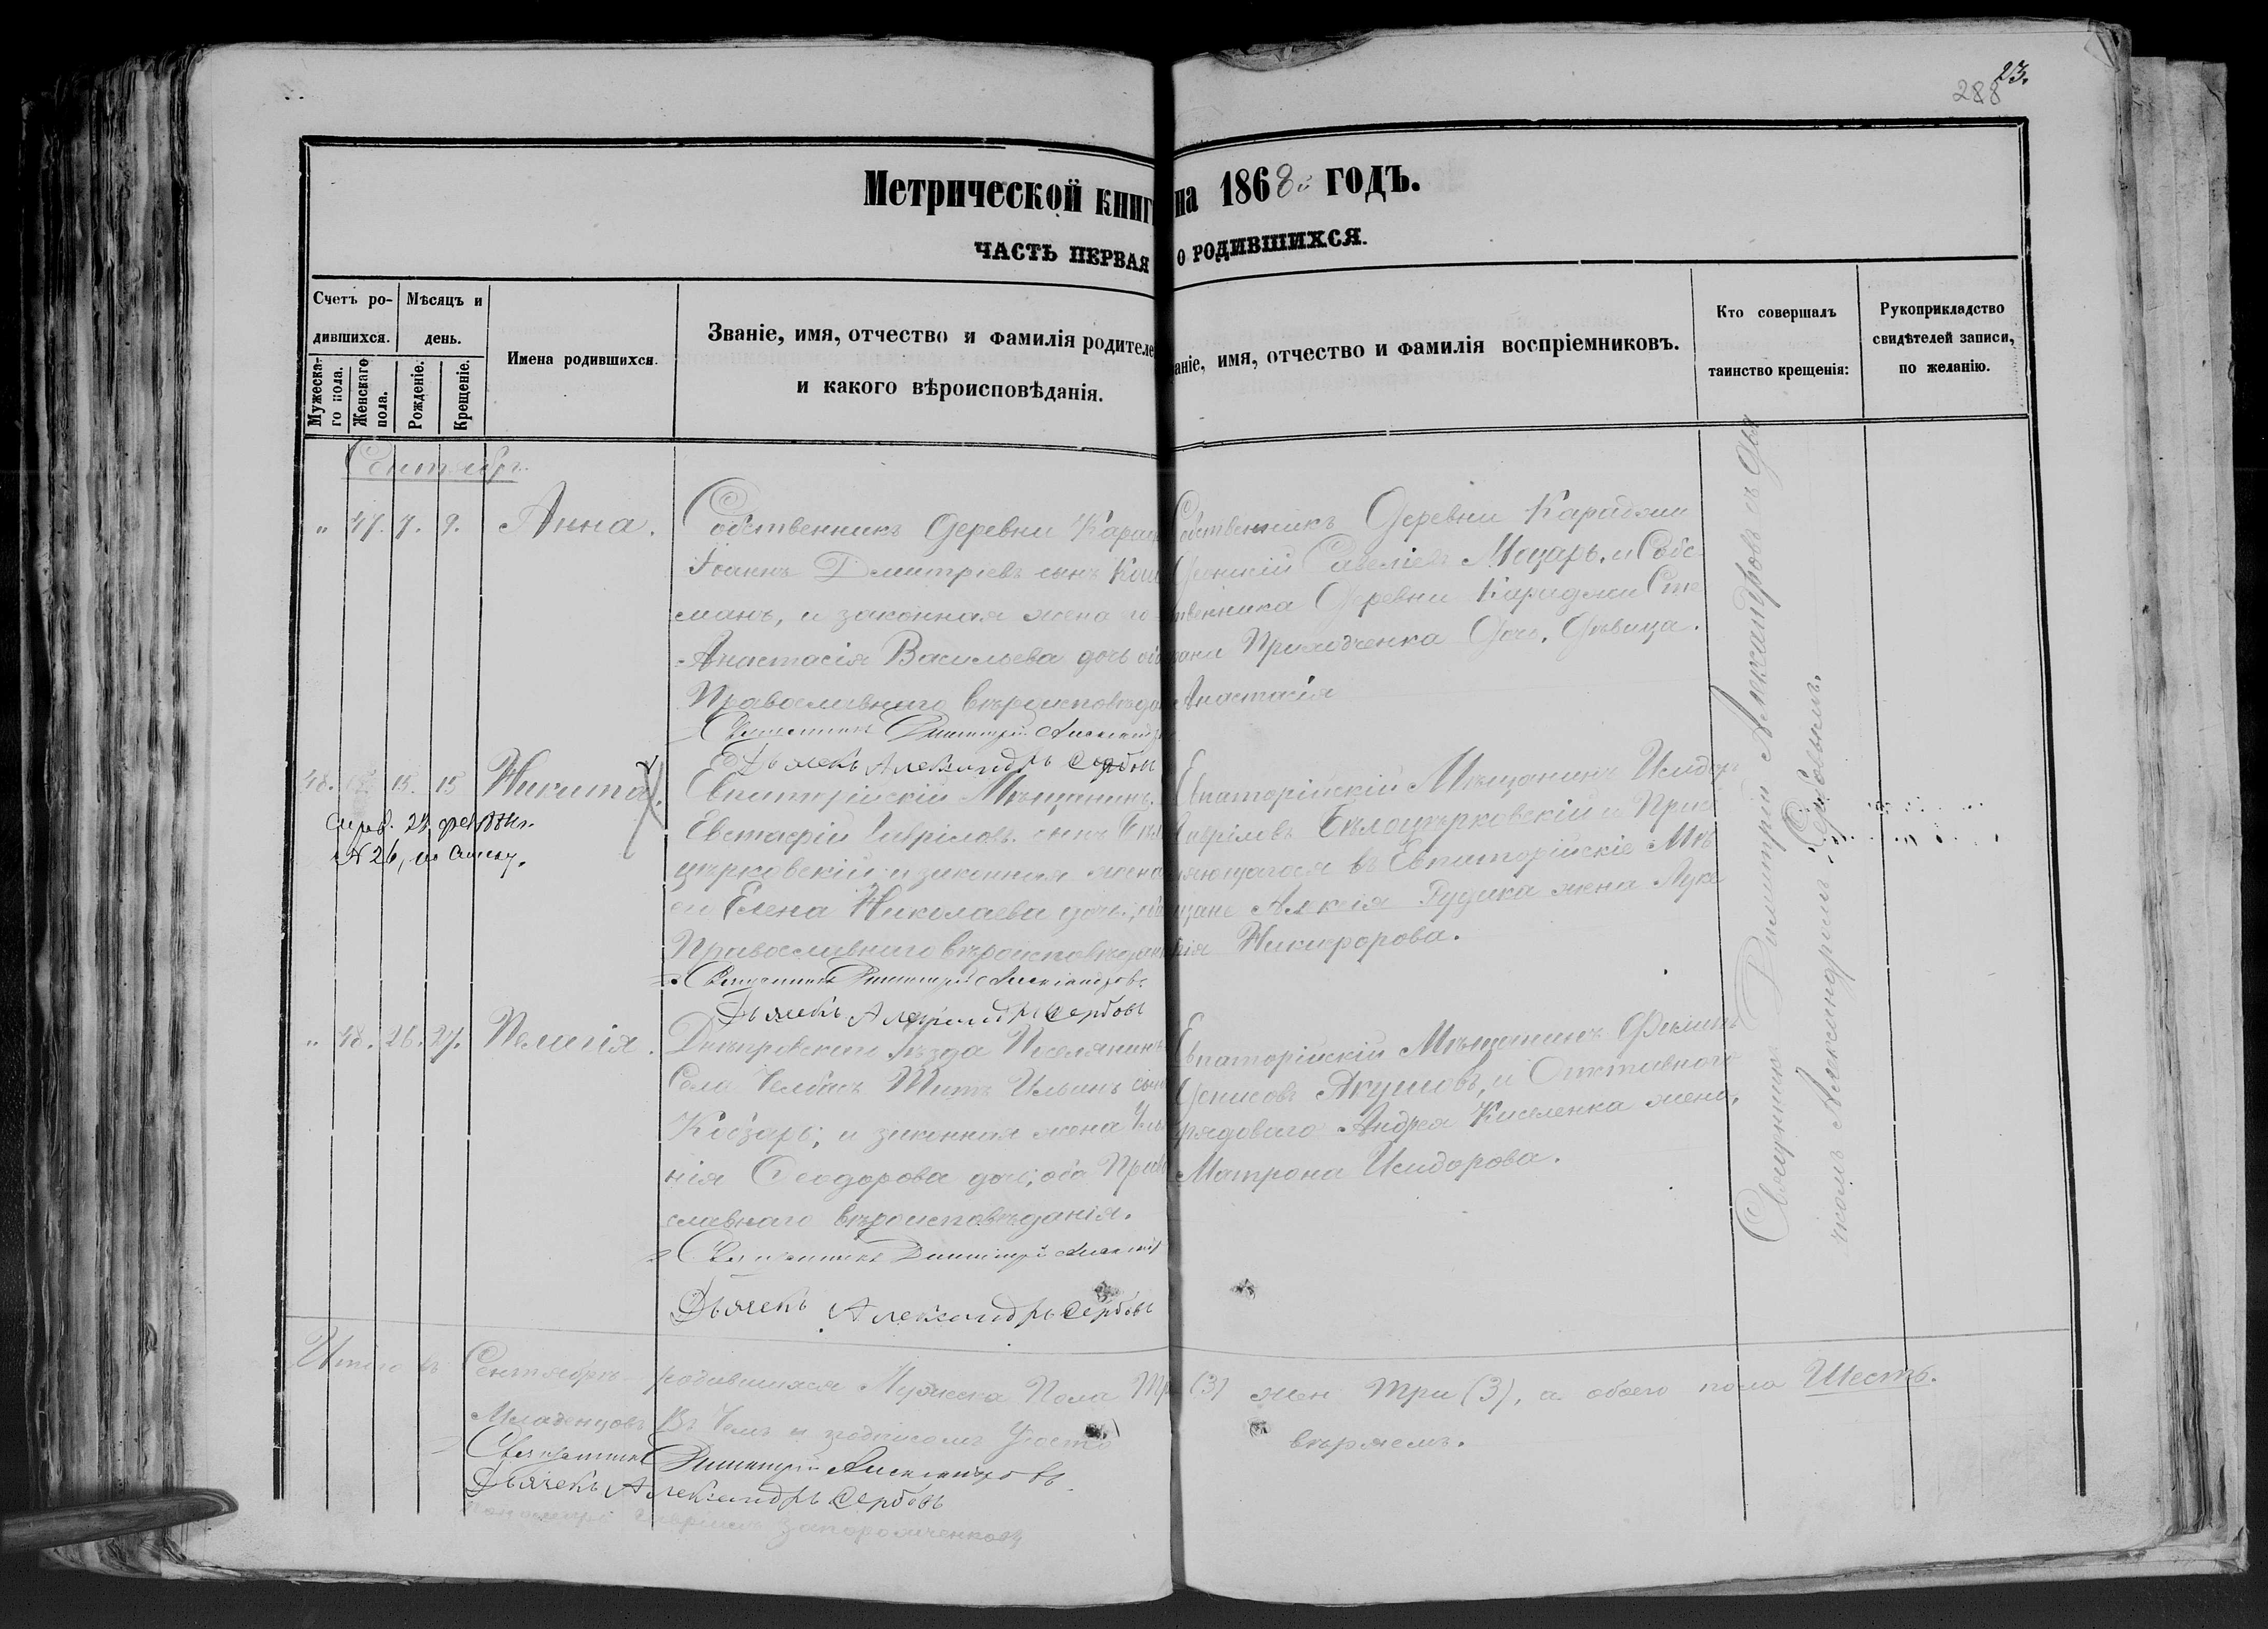 23.
288
Метрической книг на 1868 годъ.
ЧАСТЬ ПЕРВАЯ О РОДИВШИХСЯ.
Счетъ ро-
дившихся.
Мужеска-
го пола.
Женскаго
пола.
Мѣсяцъ и
день.
Рожденіе.
Крещеніе.
Имена родившихся.
Званіе, имя, отчество и фамилія родителе
и какого вѣроисповѣданія.
аніе, имя, отчество и фамилія воспріемниковъ.
Кто совершалъ
таинство крещенія:
Рукоприкладство
свидѣтелей записи,
по желанію.
Сентябрь
" 47. 7. 9. Анна.
Собственникъ деревни
Іоаннъ Дмитріевъ сынъ
манъ, и законная жена
Анастасія Васильева дочь
Православнаго вѣроисповѣда
Священникъ Димитрій
Дьячекъ Александръ Сербовъ
Собственникъ деревни
Савеліевъ Моцарь, и Собс
твенника деревни
дочь, дѣвица.
Анастасія
48. 15. 15 Никита.
№ 26,
Евпаторійскій Мѣщанинъ
Евстафій Гавріловъ сынъ Бѣл
цѣрковскій и законная жена
его Елена Николаева дочь,
Православнаго вѣроисповѣдан
Священникъ Димитрій Александровъ
Дьячекъ Александръ Сербовъ
Евпаторійскій Мѣщанинъ Исидор
Гавріловъ Бѣлоцѣрковскій и Прис
въ Евпаторійскіе Мѣ
щане Алексія Рудика жена Луке
рія Никифорова.
" 48. 26. 27. Пелагія.
Днѣпровскаго Уѣзда Поселянинъ
Села Челбасъ Титъ Ильинъ сын
Кобзарь, и законная жена
нія Ѳеодорова дочь, оба Право
славнаго вѣроисповѣданія.
Священникъ Димитрій
Дьячекъ Александръ Сербовъ
Евпаторійскій Мѣщанинъ
Денисовъ Якушовъ, и Отставного
рядоваго Андрея Киселенка жена,
Матрона Исидорова.
Священникъ Димитрій Александровъ съ Дья
чкомъ Александромъ Сербовымъ.
Итого въ Сентябрѣ родившихся Мужеска Пола Три (3) жен Три (3), а обоего пола Шесть.
Младенцовъ Въ Чемъ и подписомъ Удосто вѣряемъ.
Священникъ Димитрій Александровъ
Дьячекъ Александръ Сербовъ
Пономарь Гавріилъ Запорожченковъ